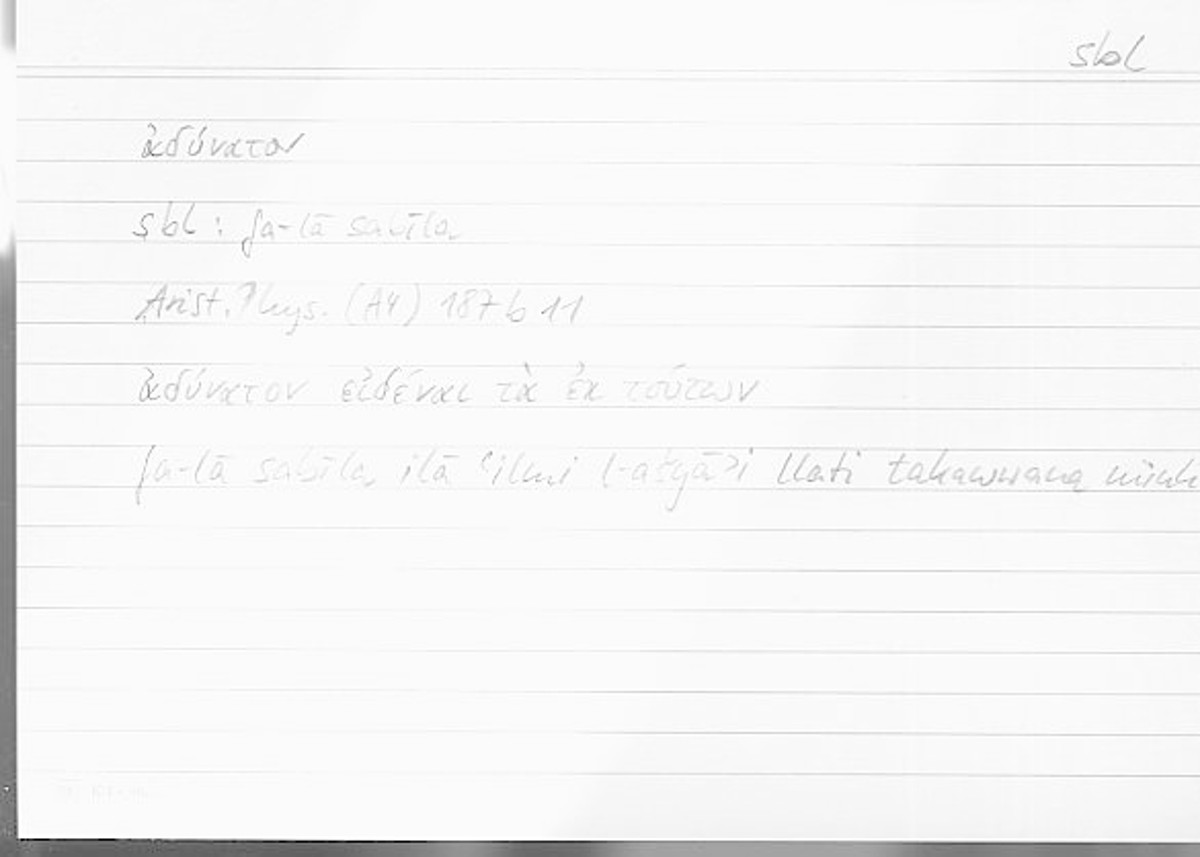 sbl
ἀδύνατον
sbl : fa-lā sabīla
Arist. Phys. (A4) 187 b 11
ἀδύνατον εἰδέναι τὰ ἐκ τούτων
fa-lā sabīla ilā ʿilmi l-ašyāʾi llatī takawwana